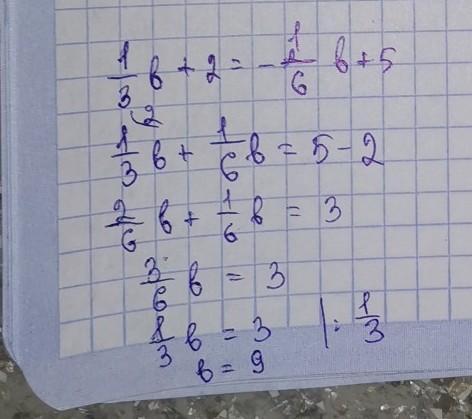 1/3 b + 2 = - 1/6 b + 5
(2
1/3 b + 1/6 b = 5 - 2
2/6 b + 1/6 b = 3
3/6 b = 3
1/3 b = 3 |: 1/3
b = 9